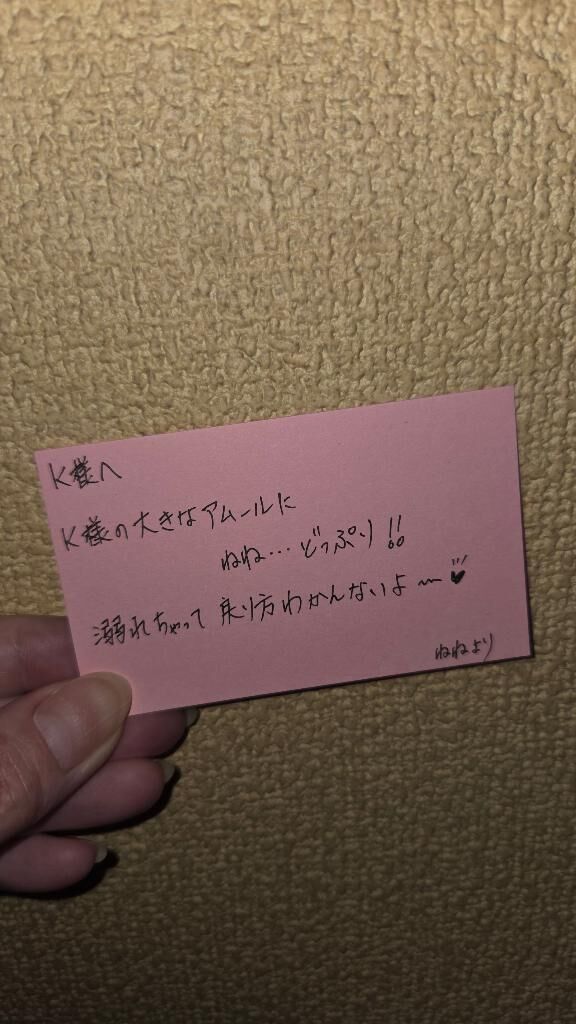 K様へ
K様の大きなアムールに
ねね…どっぷり!!
溺れちゃって 乗り方わかんないよ〜♥
ねねより